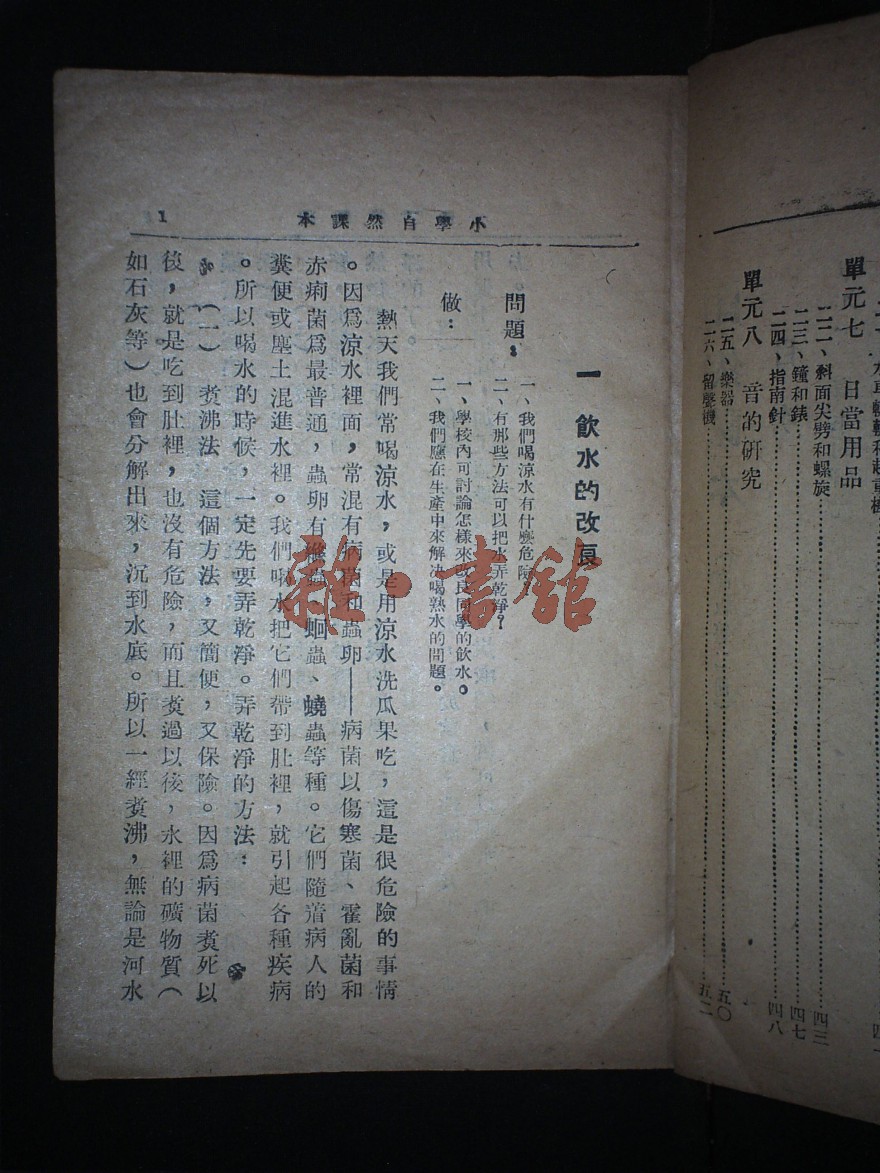 單元七　日常用品
二二、斜面尖劈和螺旋……四三
二三、鐘和錶……四七
二四、指南針……四八
單元八　音的研究
二五、樂器……五〇
二六、留聲機……五二
小學自然課本　1
一　飲水的改良
問題：
一、我們喝涼水有什麽危險？
二、有那些方法可以把水弄乾淨？
做：
一、學校內可討論怎樣來改良同學的飲水。
二、我們應在生產中來解決喝熟水的問題。
熱天我們常喝涼水，或是用涼水洗瓜果吃，這是很危險的事情
。因爲涼水裡面，常混有病菌和蟲卵——病菌以傷寒菌、霍亂菌和
赤痢菌爲最普通，蟲卵有絛蟲、蛔蟲、蟯蟲等種。它們隨着病人的
糞便或塵土混進水裡。我們喝水把它們帶到肚裡，就引起各種疾病
。所以喝水的時候，一定先要弄乾淨。弄乾淨的方法：
（一）煑沸法　這個方法，又簡便，又保險。因爲病菌煑死以
後，就是吃到肚裡，也沒有危險，而且煑過以後，水裡的礦物質（
如石灰等）也會分解出來，沉到水底。所以一經煑沸，無論是河水
雜·書館